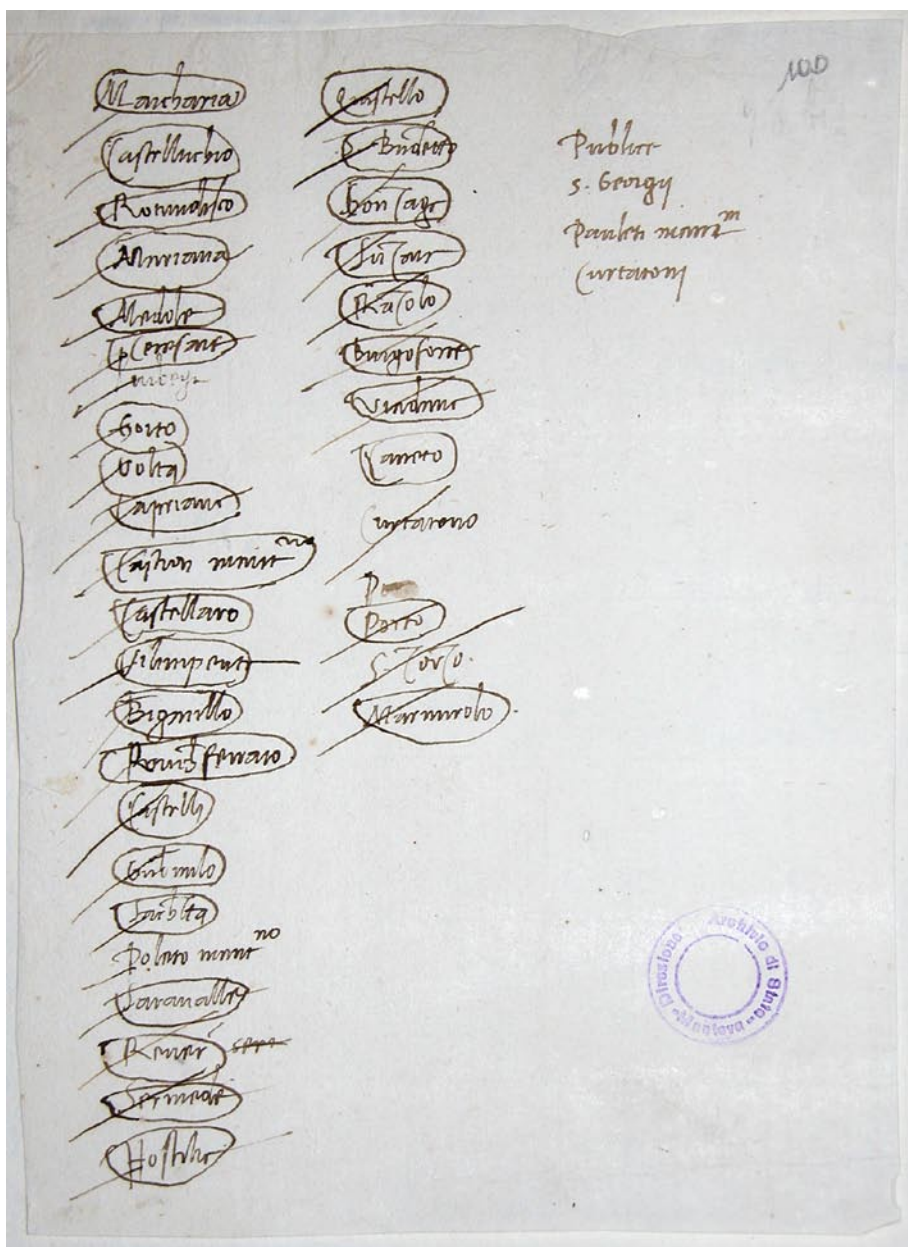 100
Marcharia
Castelluchio
Rotundisco
Mariana
Medole
Ceresare
Goito
Volta
Capriane
Castion mant no
Castellaro
Vilimpente
Bigarello
ferraro
Castelli
Sacheta
Poleto mant no
Saravalle
Rever
Sermede
Hostilie
Castello
S. Bndetto
Gonzage
Luzare
Razolo
Burgoforte
Viadane
Caneto
Curtatono
Po
Porto
S. Zorzo.
Marmirolo
Publice
S. Georgij
Pauleti mant m
Curtatonj
Direzione Archivio di Stato
Mantova